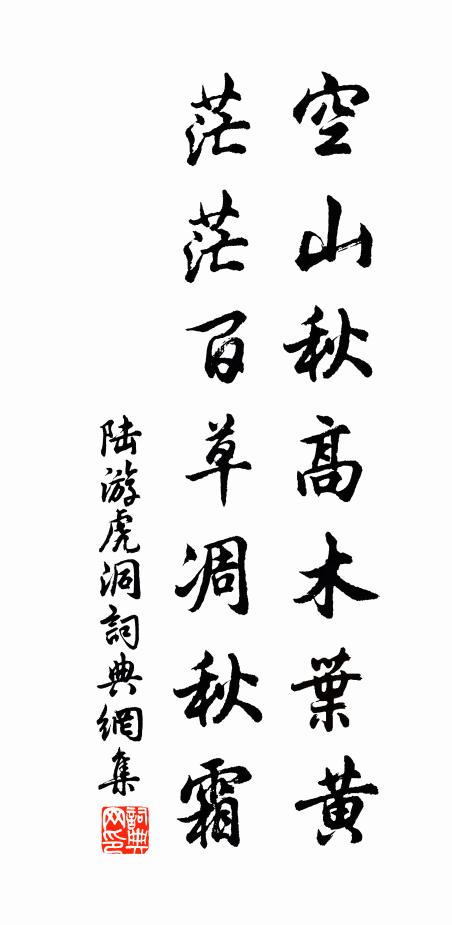 空山秋高木葉黄
茫茫百草凋秋霜
陆游虎洞詞典網集
詞典网印